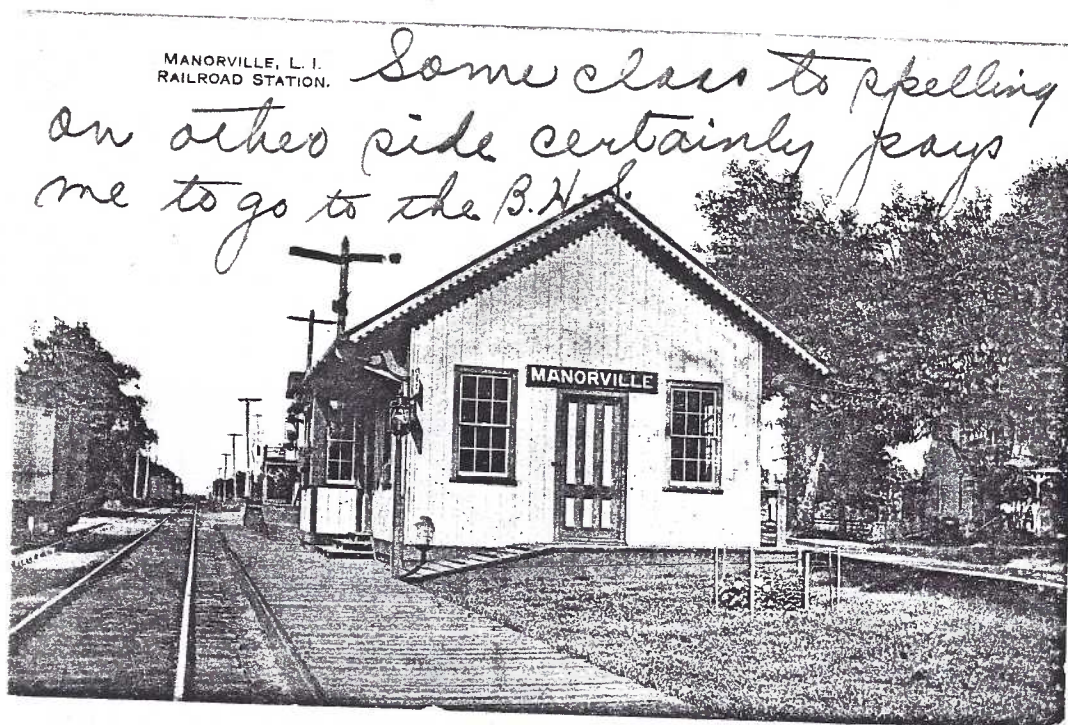 MANORVILLE, L. I.
RAILROAD STATION.
Some class to spelling
on other side certainly pays
me to go to the B.H.S.
MANORVILLE